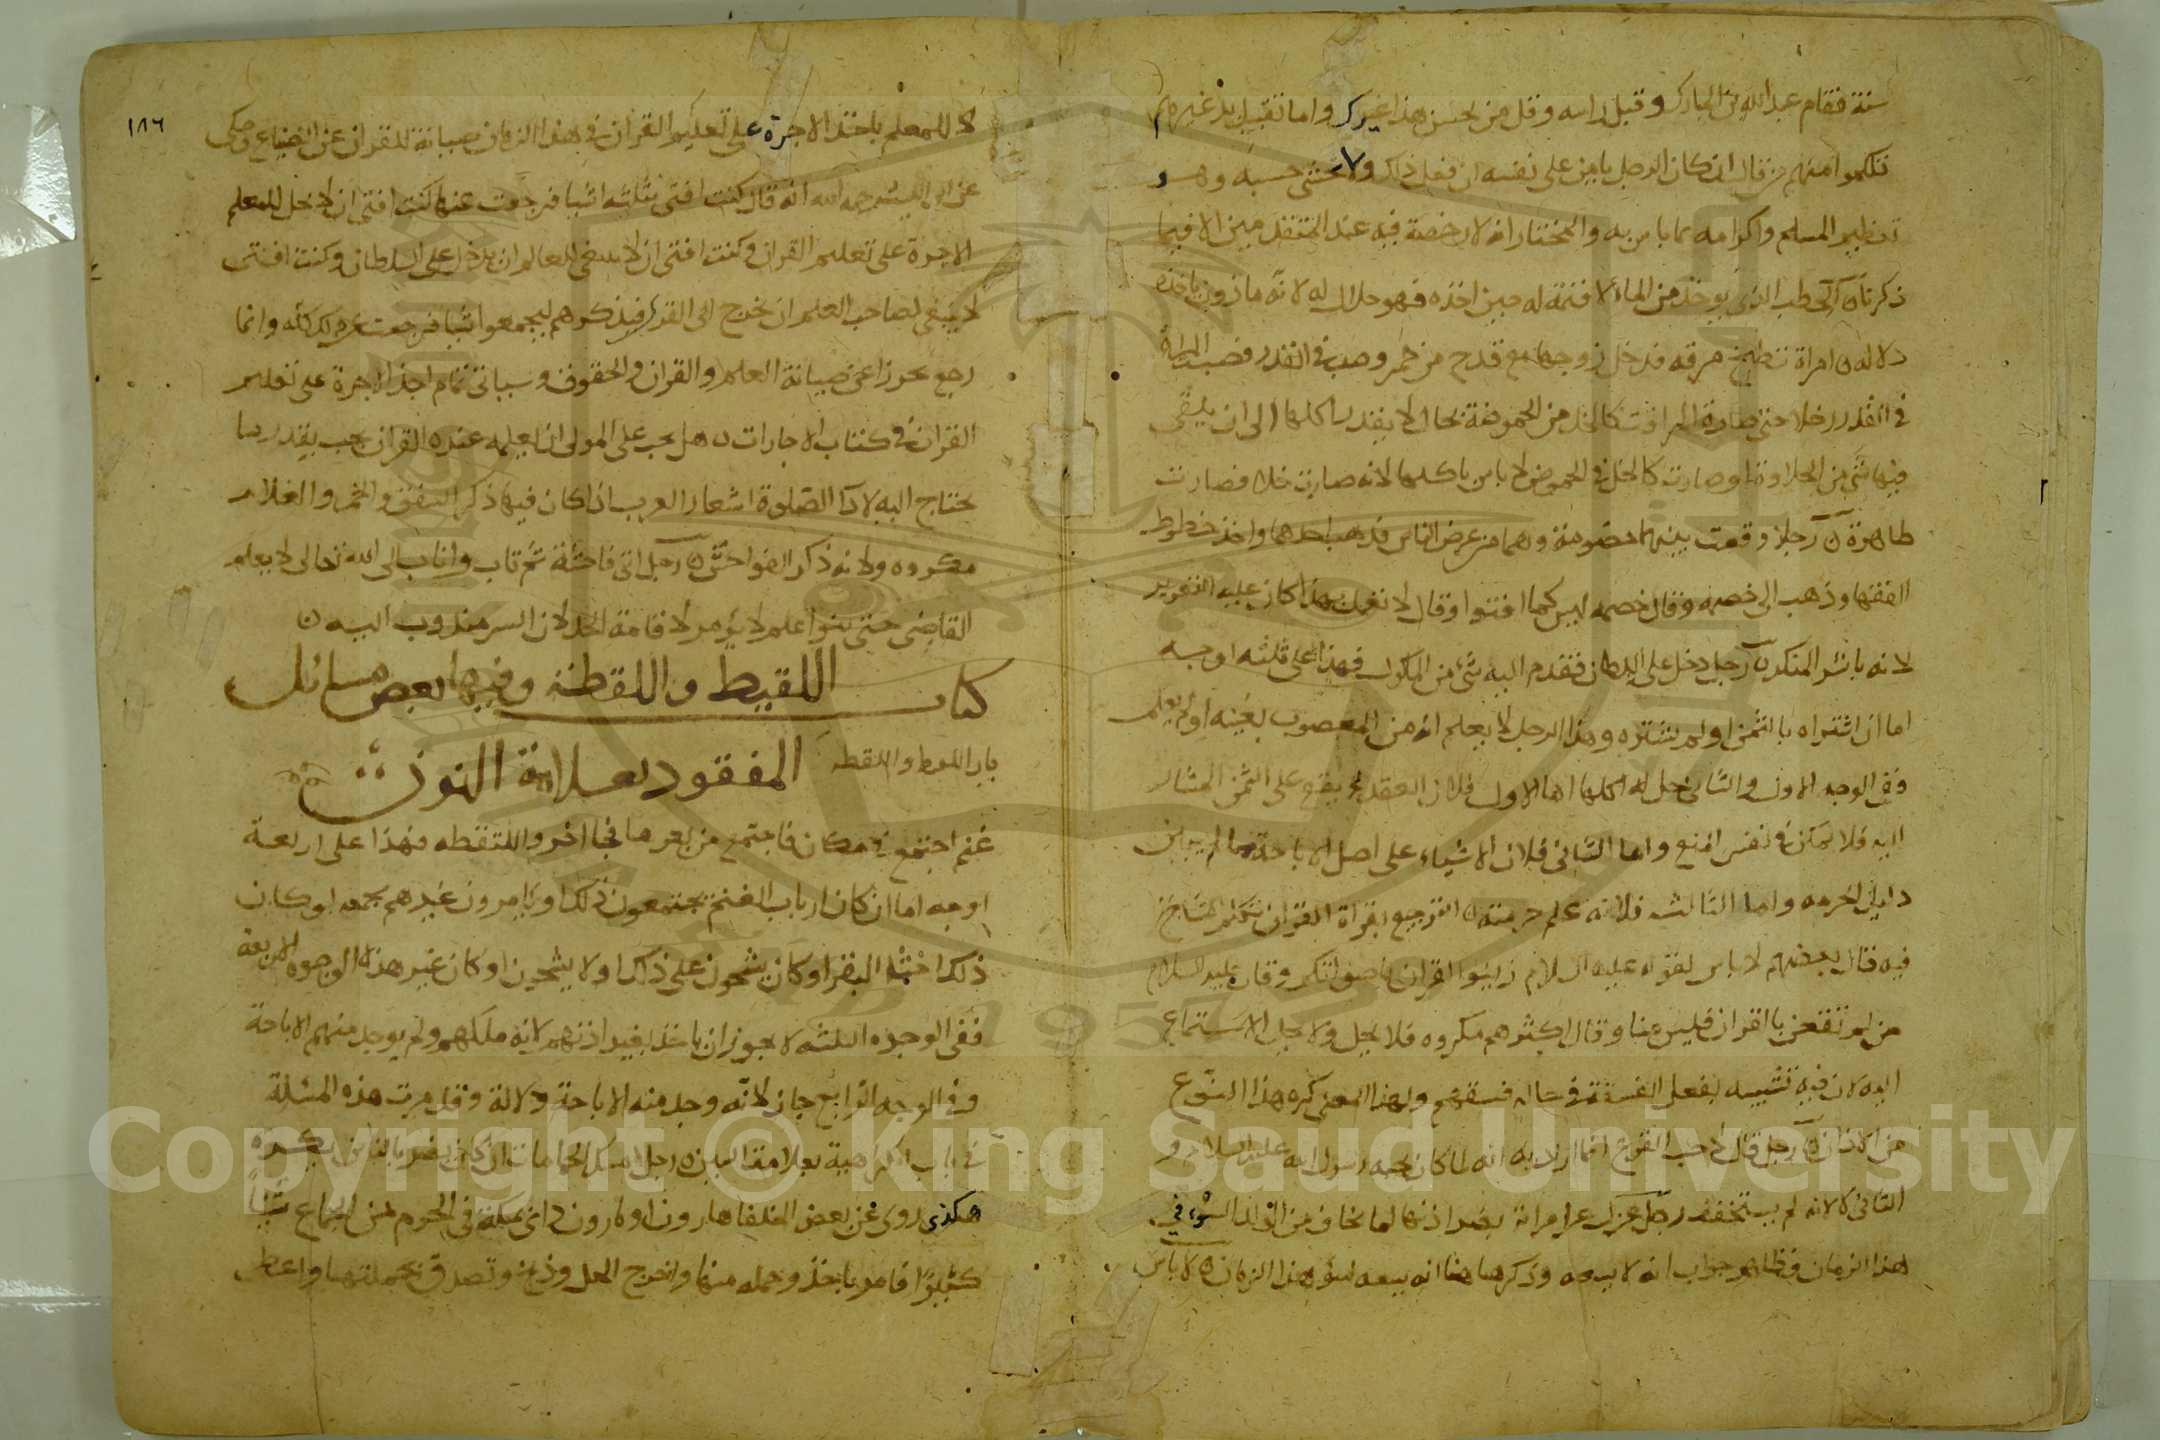 سنة فقام عبد الله بن المبارك وقبل راسه وقال من يحسن هذا غيرك واما تقبيل يد غيرهم
تكلموا منهم من قال ان كان الرجل يامن على نفسه ان فعل ذلك ولا يخشى حسبه وهو
تعظيم المسلم واكرامه بما باس به والمختار انه لا رخصة فيه عند المتقدمين الا فيما
ذكرنا الحطب الذي يوجد من الماء لا قيمة له حين اخذه فهو حلال له لانه ماذون باخذه
دلالة امراة تطبخ مرقة فدخل زوجها مع قدح من خمر وصب في القدر فصب المراة
في القدر خلا حتى صارة المراقة كالخل من الحموضة بحال لا يقدر اكلها الى ان يلقى
فيها شي من الحلاوة او صارت كالخل في الحموض لا باس باكلها لانه صارت خلا فصارت
طاهرة رجلا وقعت بينهما خصومة وهما من عرض الناس فذهب احدهما واخذ خطوط
الفقها وذهب الى خصمه وقال خصمه ليس كما افتوا وقال لا نعمل بهذا كان عليه التعزير
لانه باشر المنكر رجل دخل على السلطان فقدم اليه شي من الماكول فهذا على ثلثه اوجه
اما ان اشتراه بالثمن او لم يشتره وهذا الرجل لا يعلم انه من المغصوب بعينه او لم يعلم
وفي الوجه الاول والثاني حل له اكلها اما الاول فلان العقد لم يقع على الثمن المشار
اليه فلا يمكن في نفس المبيع واما الثاني فلان الاشياء على اصل الاباحة ما لم يتبين
دليل الحرمه واما الثالث فلانه علم حرمته الترجيع بقراة القران تكلم المشايخ
فيه قال بعضهم لا باس لقوله عليه السلام زينوا القران باصواتكم وقال عليه السلام
من لم يتغن بالقران فليس منا وقال اكثرهم مكروه فلا يحل ولا يحل الاستماع
اليه لان فيه تشبيه بفعل الفسقة في حال فسقهم ولهذا المعنى كره هذا النوع
من الاذان رجل قال لا احب القرع انما اراد به انه لما كان يحبه رسول الله عليه السلام و
الثاني لا لانه لم يستخفف رجل عزل عن امراته بغير اذنها لما يخاف من الولد السوء في
هذا الزمان فظاهر جواب انه لا يسعه وذكر هاهنا انه يسعه لسوء هذا الزمان لا باس
١٨٦
للمعلم باخذ الاجرة على تعليم القران في هذا الزمان صيانة للقران عن الضياع وحكي
عن ابي الليث رحمه الله انه قال كنت افتي بثلثه اشيا فرجعت عنها كنت افتي ان لا يحل للمعلم
الاجرة على تعليم القران وكنت افتي ان لا ينبغي للعالم ان يدخل على السلطان وكنت افتي
لا ينبغي لصاحب العلم ان يخرج الى القرى فيذكرهم ليجمعوا شيا فرجعت عن ذلك كله وانما
رجع تحرزا عن صيانة العلم والقران والحقوق وسياتي تمام اخذ الاجرة على تعليم
القران في كتاب الاجارات هل يجب على المولى ان يعلمه عبده القران يجب بقدر ما
يحتاج اليه لاداء الصلوة اشعار العرب اذا كان فيها ذكر الفسق والخمر والغلام
مكروه ولانه ذكر الفواحش رجل اتى فاحشة ثم تاب واناب الى الله تعالى لا يعلم
القاضي حتى ولو اعلم لا يؤمر لاقامة الحد لان الستر مندوب اليه
كتاب اللقيط واللقطة وفيها بعض مسائل
باب اللقيط واللقطه
المفقود بعلامة النون
غنم اجتمع في مكان فاجتمع من بعرها فجا اخر والتقطه فهذا على اربعة
اوجه اما ان كان ارباب الغنم يجتمعون ذلك او يامرون غيرهم بجمعه او كان
ذلك اخثاء البقر او كان يشحون على ذلك او لا يشحون او كان غير هذه الوجوه الاربعة
ففي الوجوه الثلثه لا يجوز ان ياخذ بغير اذنهم لانه ملكهم ولم يوجد منهم الاباحة
وفي الوجه الرابع جاز لانه وجد منه الاباحة دلالة وقد مرت هذه المسئلة
في باب الكراهية بعلامة السين رجل امسك الحمامات ان كان يضر بالناس يكره
هكذى روي عن بعض الخلفا هارون او مارون راى بمكة في الحرم من الحمام شيا
كثيرا فامر باخذ وحمله منها واخرج الحل وذبح وتصدق بجملتها واعطى
Copyright © King Saud University
1957